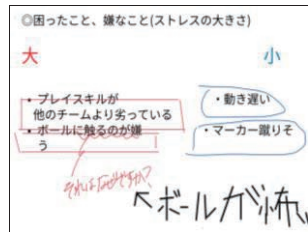 ◎困ったこと、嫌なこと(ストレスの大きさ)
大
小
・プレイスキルが
他のチームより劣っている
・ボールに触るのが嫌
う
・動き遅い
・マーカー蹴りそ
それはなぜですか?
↖ボールが怖い